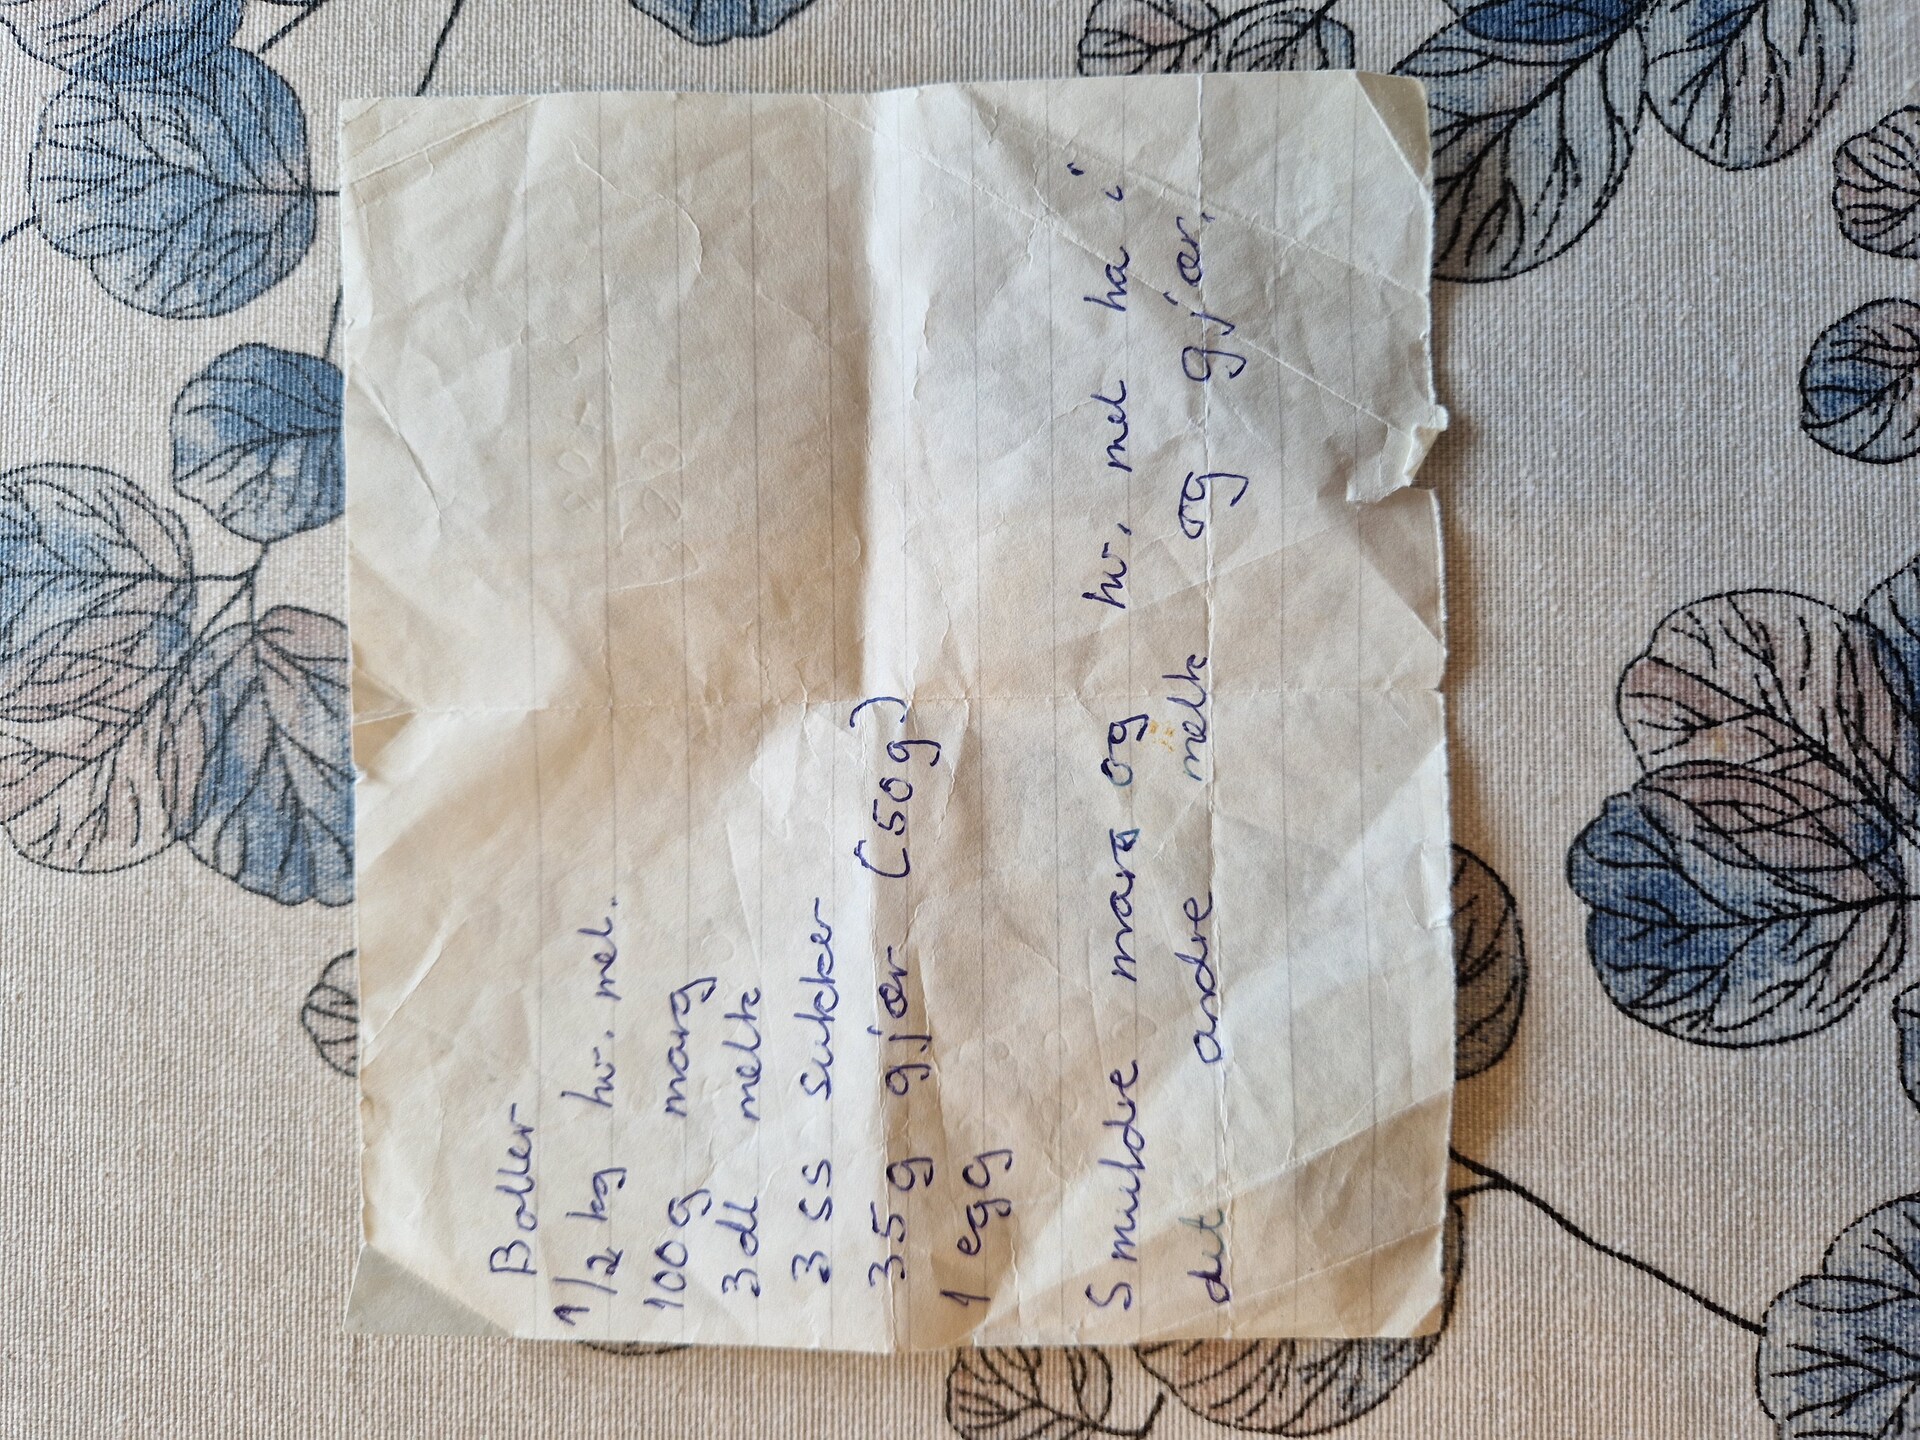 Boller
1/2 kg hv. mel.
100g marg
3 dl melk
3 ss sukker
35g gjær (50g)
1 egg
Smuldre marg og hv. mel ha i
det andre melk og gjær.